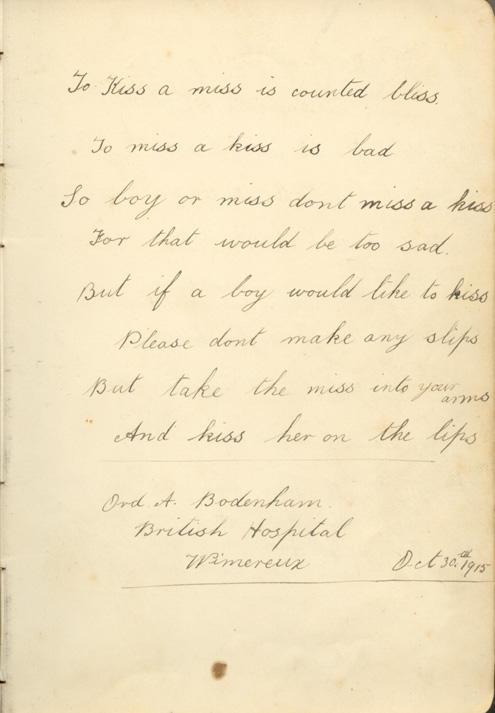 To Kiss a miss is counted bliss.
To miss a kiss is bad
So boy or miss dont miss a kiss
For that would be too sad.
But if a boy would like to kiss
Please dont make any slips
But take the miss into your arms
And kiss her on the lips
Ord A. Bodenham.
British Hospital
Wimereux Oct 30th 1915